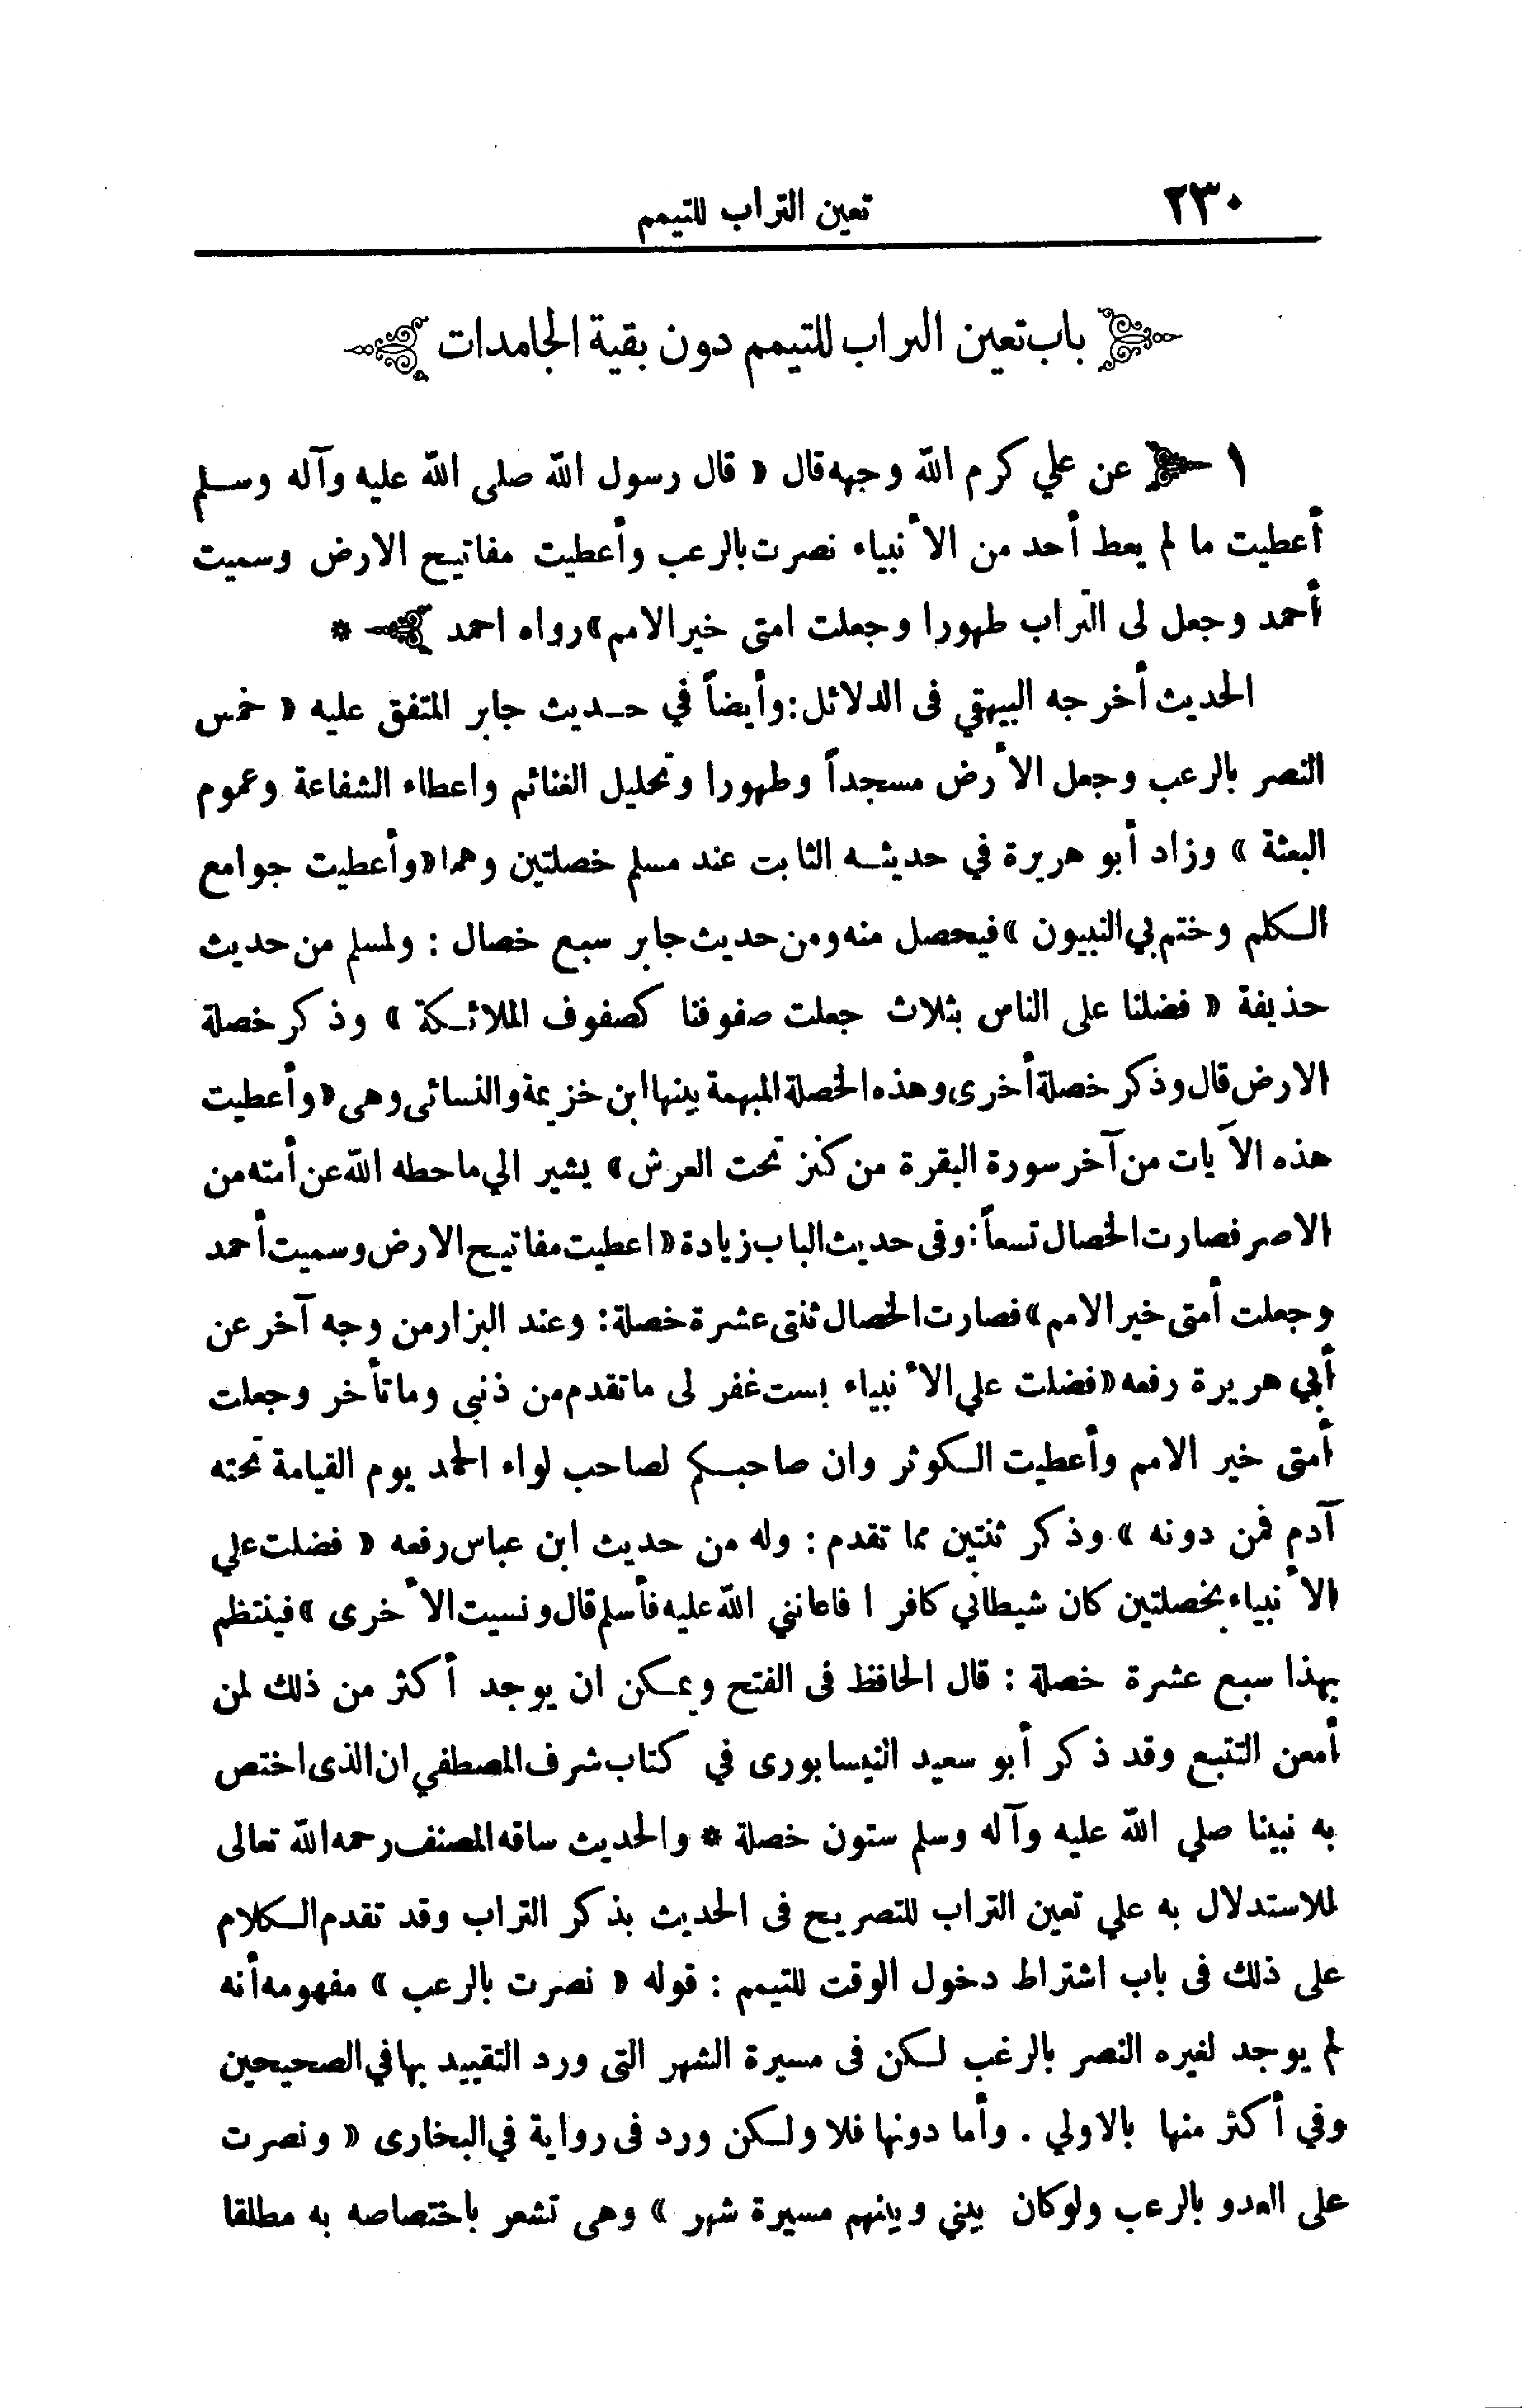 ٢٣٠
تعين التراب للتيمم
باب تعين التراب للتيمم دون بقية الجامدات
١ عن علي كرم الله وجهه قال « قال رسول الله صلى الله عليه وآله وسلم
أعطيت ما لم يعط أحد من الأنبياء نصرت بالرعب وأعطيت مفاتيح الارض وسميت
أحمد وجعل لى التراب طهورا وجعلت امتى خير الامم » رواه احمد *
الحديث أخرجه البيهقي فى الدلائل : وأيضاً في حديث جابر المتفق عليه « خمس
النصر بالرعب وجعل الأرض مسجداً وطهورا وتحليل الغنائم واعطاء الشفاعة وعموم
البعثة » وزاد أبو هريرة في حديثه الثابت عند مسلم خصلتين وهما « وأعطيت جوامع
الكلم وختم بي النبيون » فيحصل منه ومن حديث جابر سبع خصال : ولمسلم من حديث
حذيفة « فضلنا على الناس بثلاث جعلت صفوفنا كصفوف الملائكة » وذكر خصلة
الارض قال وذكر خصلة أخرى وهذه الخصلة المبهمة بينها ابن خزيمة والنسائى وهى « وأعطيت
هذه الآيات من آخر سورة البقرة من كنز تحت العرش » يشير الي ما حطه الله عن أمته من
الاصر فصارت الخصال تسعاً : وفى حديث الباب زيادة « اعطيت مفاتيح الارض وسميت أحمد
وجعلت أمتى خير الامم » فصارت الخصال ثنتى عشرة خصلة : وعند البزار من وجه آخر عن
أبي هريرة رفعه « فضلت علي الأنبياء بست غفر لى ما تقدم من ذنبى وما تأخر وجعلت
أمتى خير الامم وأعطيت الكوثر وان صاحبكم لصاحب لواء الحمد يوم القيامة تحته
آدم فمن دونه » وذكر ثنتين مما تقدم : وله من حديث ابن عباس رفعه « فضلت علي
الأنبياء بخصلتين كان شيطاني كافرا فاعانني الله عليه فأسلم قال ونسيت الأخرى » فينتظم
بهذا سبع عشرة خصلة : قال الحافظ فى الفتح ويمكن ان يوجد أكثر من ذلك لمن
أمعن التتبع وقد ذكر أبو سعيد النيسابورى في كتاب شرف المصطفي ان الذى اختص
به نبينا صلي الله عليه وآله وسلم ستون خصلة * والحديث ساقه المصنف رحمه الله تعالى
للاستدلال به علي تعين التراب للتصريح فى الحديث بذكر التراب وقد تقدم الكلام
على ذلك فى باب اشتراط دخول الوقت للتيمم : قوله « نصرت بالرعب » مفهومه أنه
لم يوجد لغيره النصر بالرغب لكن فى مسيرة الشهر التى ورد التقييد بها في الصحيحين
وفي أكثر منها بالاولي . وأما دونها فلا ولكن ورد فى رواية في البخارى « ونصرت
على العدو بالرعب ولو كان بيني وبينهم مسيرة شهر » وهى تشعر باختصاصه به مطلقا